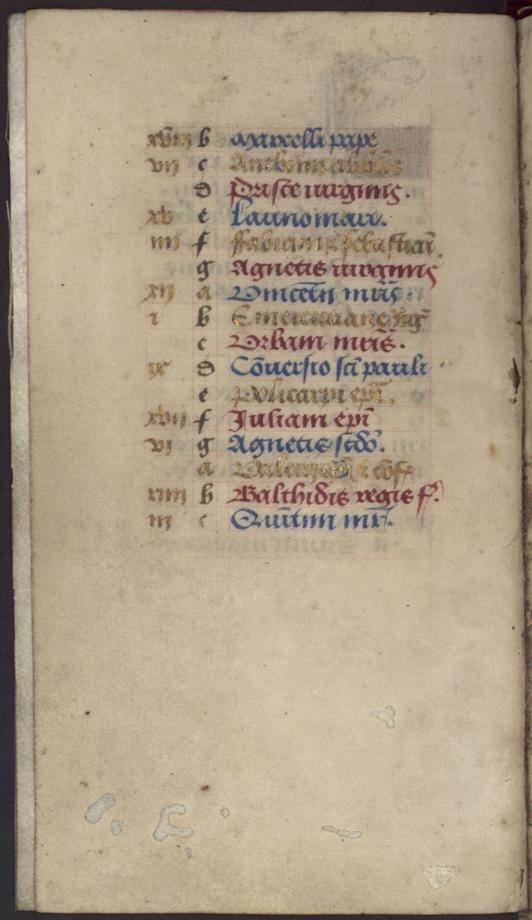 xviii b Marcelli pape
vii c Anthonii abbatis
d Prisce virginis.
xv e Launomari.
iiii f Fabiani z sebastiani.
g Agnetis virginis
xii a Vincetii mris.
i b Emerenciane vg
c Orbani mris.
ix d Cōversio sci pauli
e Policarpi epi.
xvii f Juliani epi
vi g Agnetis scdo.
a cōf.
xiiii b Balthidis regie f.
iii c Quītini mr.